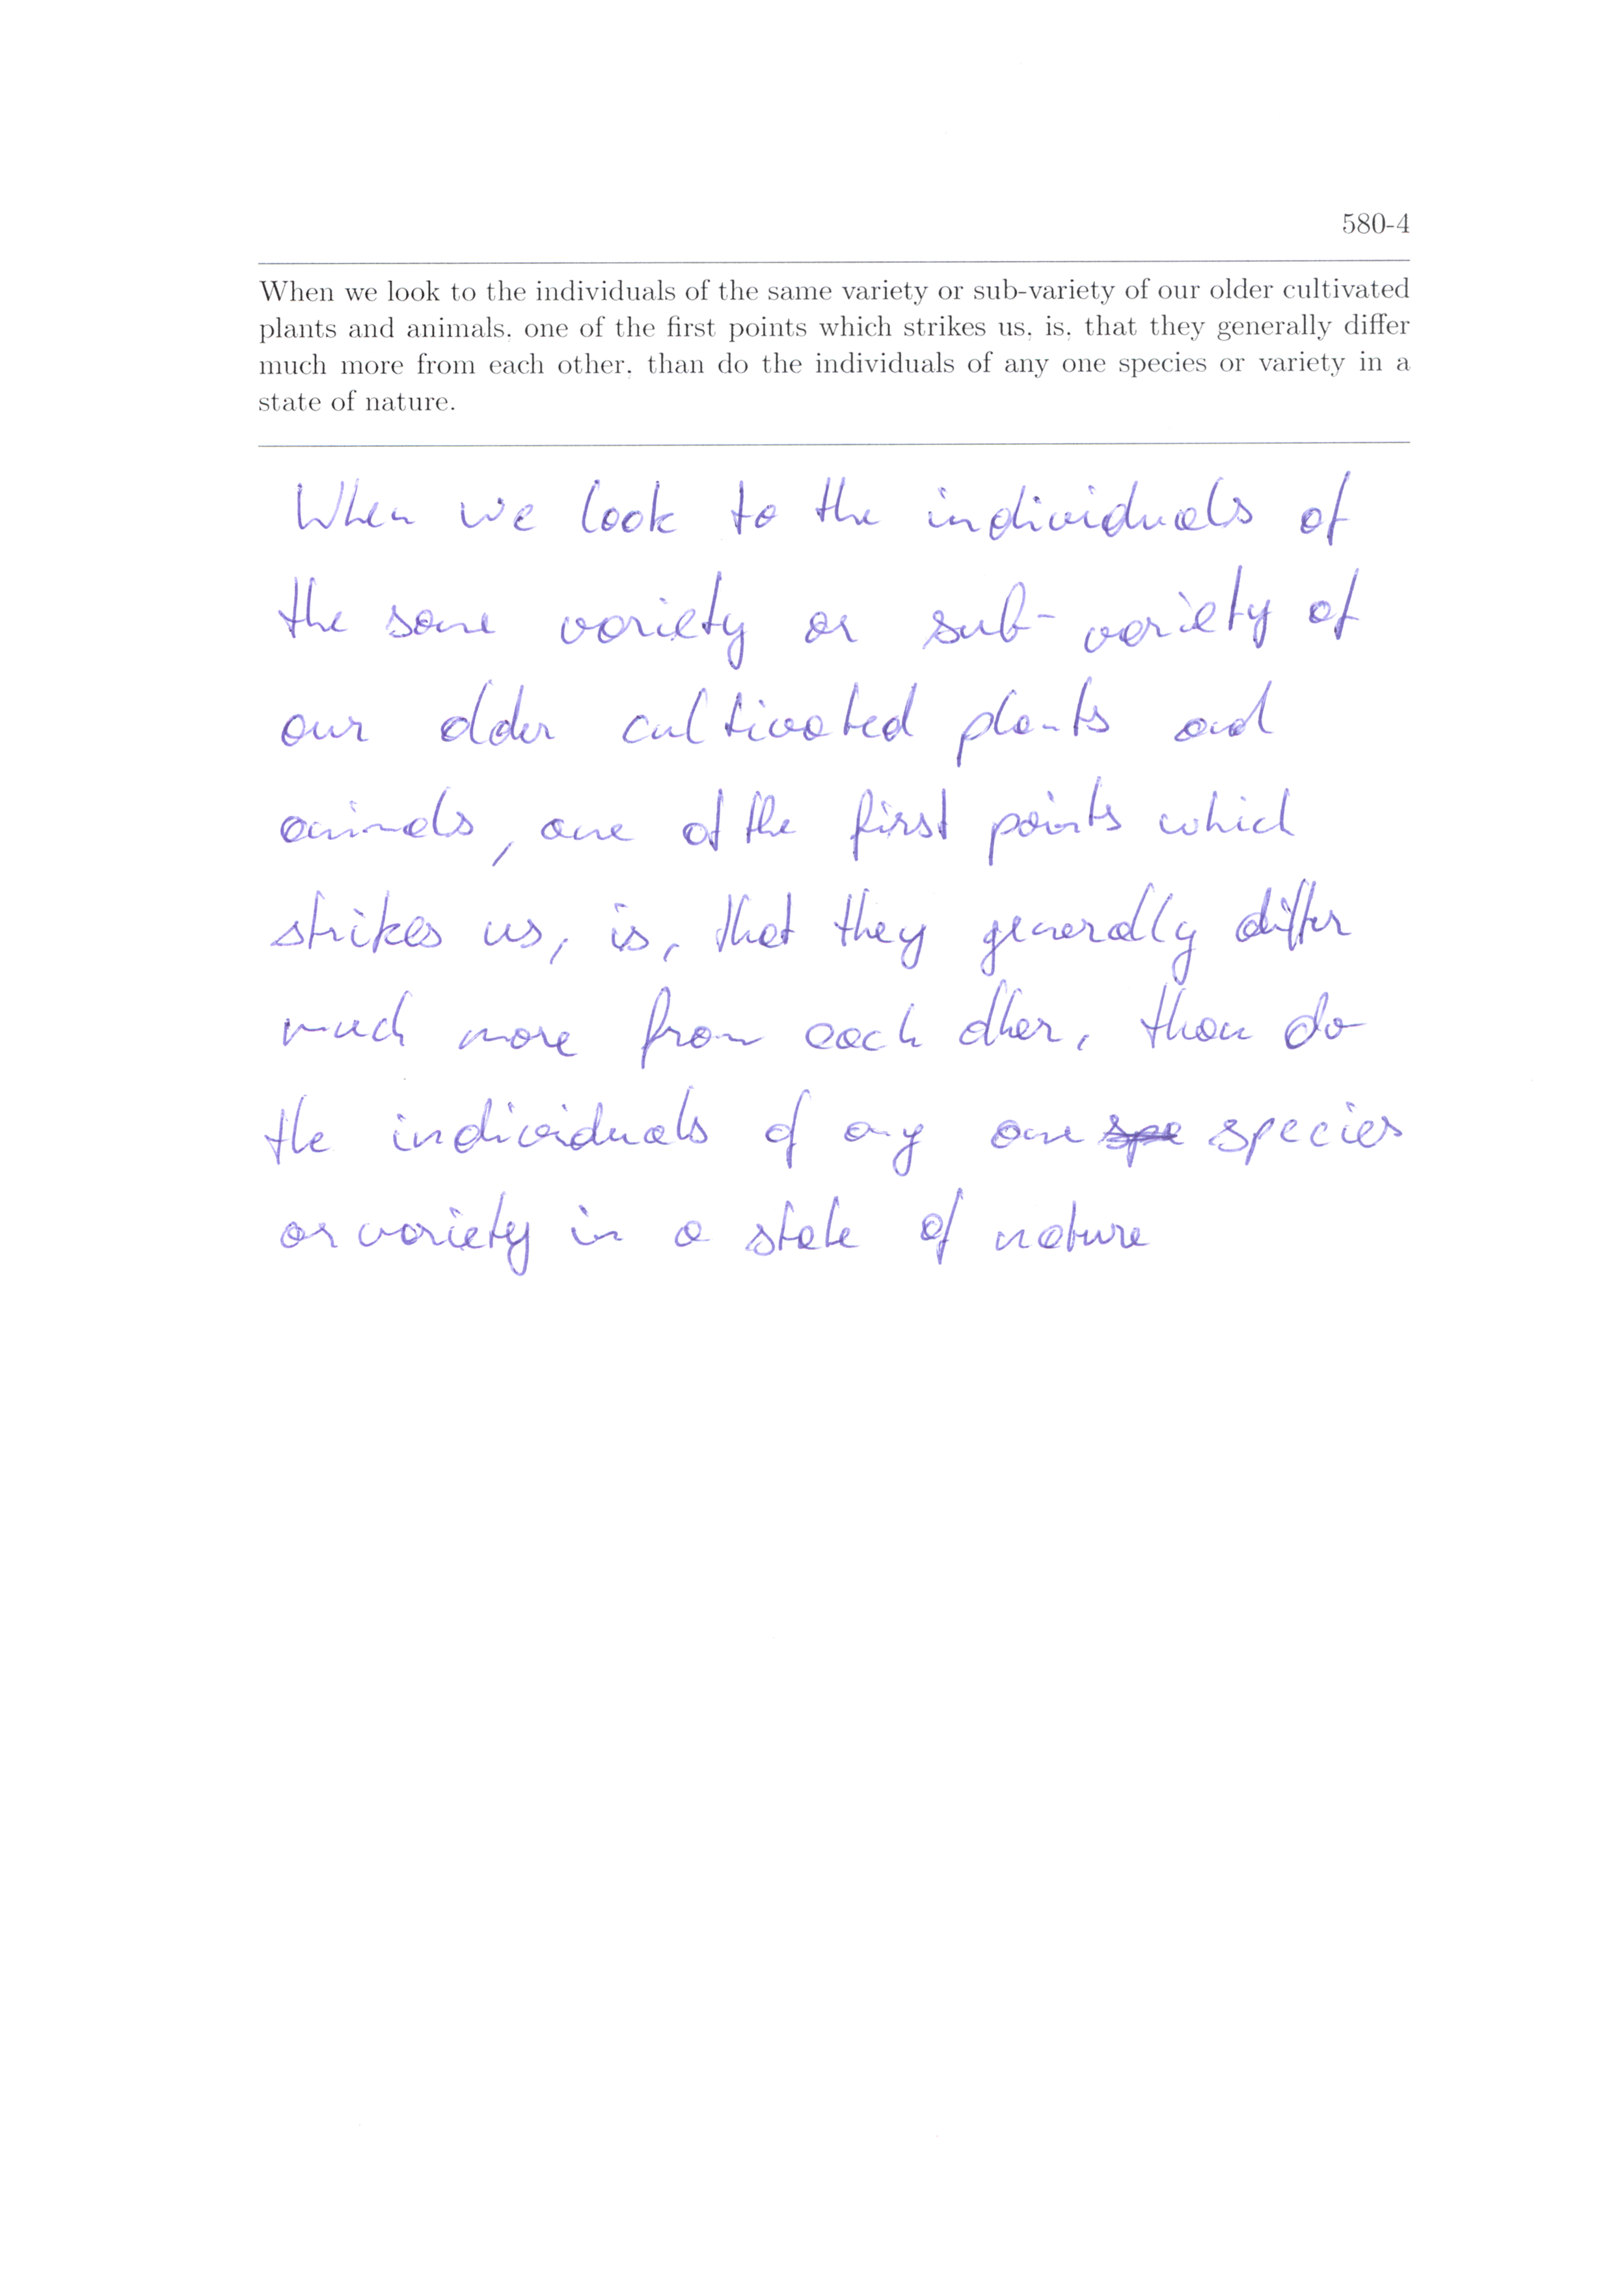 580-4
When we look to the individuals of the same variety or sub-variety of our older cultivated
plants and animals, one of the first points which strikes us, is, that they generally differ
much more from each other, than do the individuals of any one species or variety in a
state of nature.
When we look to the individuals of
the same variety or sub-variety of
our older cultivated plants and
animals, one of the first points which
strikes us, is, that they generally differ
much more from each other, than do
the individuals of any one spe species
or variety in a state of nature